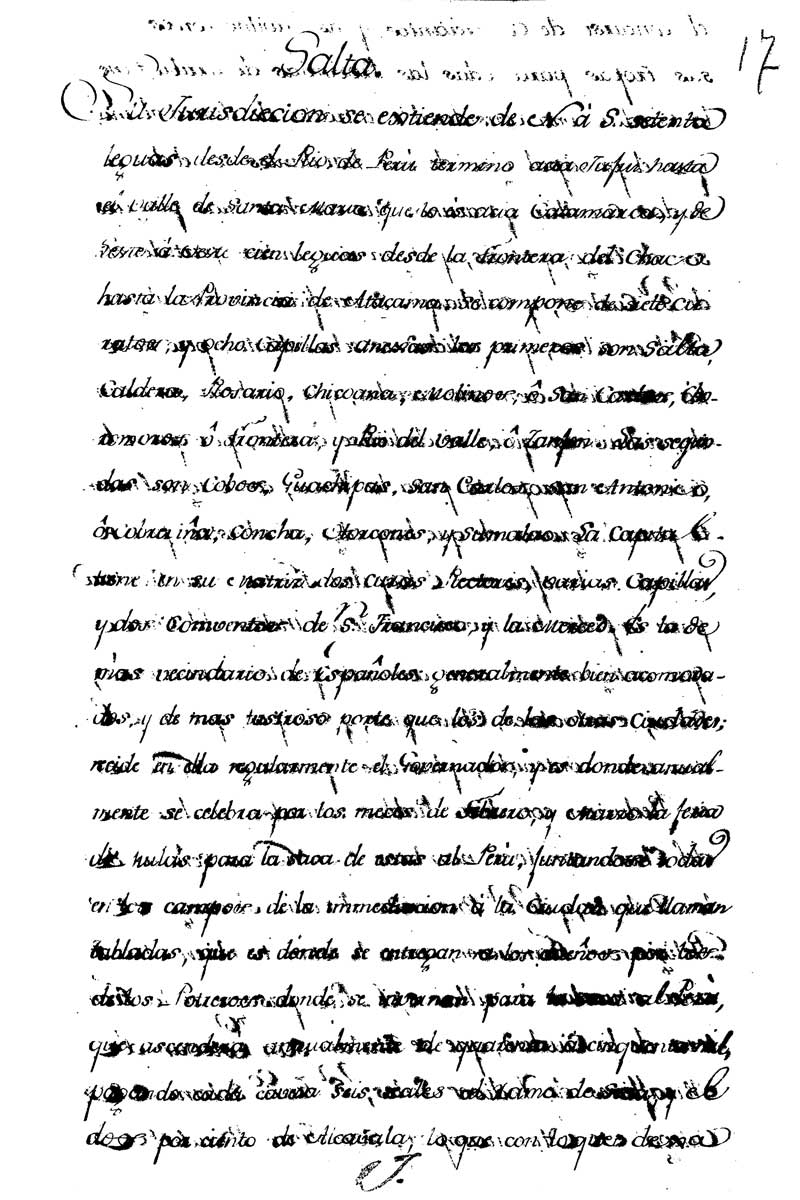 17
Salta.
Su Jurisdiccion se extiende de N. à S. setenta
leguas desde el Rio de Perú termino acia Jujui hasta
el valle de Santa Maria que lo es acia Catamarca, y de
Leste à Oeste cien leguas desde la frontera del Chaco
hasta la Provincia de Atacama. Se compone de siete Cu-
ratos, y ocho Capillas anexas: los primeros son Salta,
Caldera, Rosario, Chicoana, Molinos, ô San Carlos, Cho-
romoros, ô frontera, y Rio del Valle, ô Las segun-
das son Cobos, Guachipas, San Carlos, San Antonio,
ô Concha, y Sumalao. La Capital
tiene en su Matriz dos Curas Rectores, varias Capillas,
y dos Conventos de Sn. Francisco, y la Merced. Es la de
mas vecindario de Españoles generalmente bien acomoda-
dos, y de mas lustroso porte que los de las otras Ciudades;
recide en ella regularmente el Governador, y es donde anual-
mente se celebra por los meces de Febrero, y Marzo la feria
de mulas para la saca de estas al Perú, juntandose todas
en los campos de la immediacion à la Ciudad que llaman
tabladas, que es dónde se entregan a los dueños por
Potreros donde se para al Perú,
que ascenderá anualmente de quarenta à cinquenta mil,
pagando cada caveza seis reales al ramo de Sisa, y el
dos por ciento de Alcavala, lo que con lo que demas